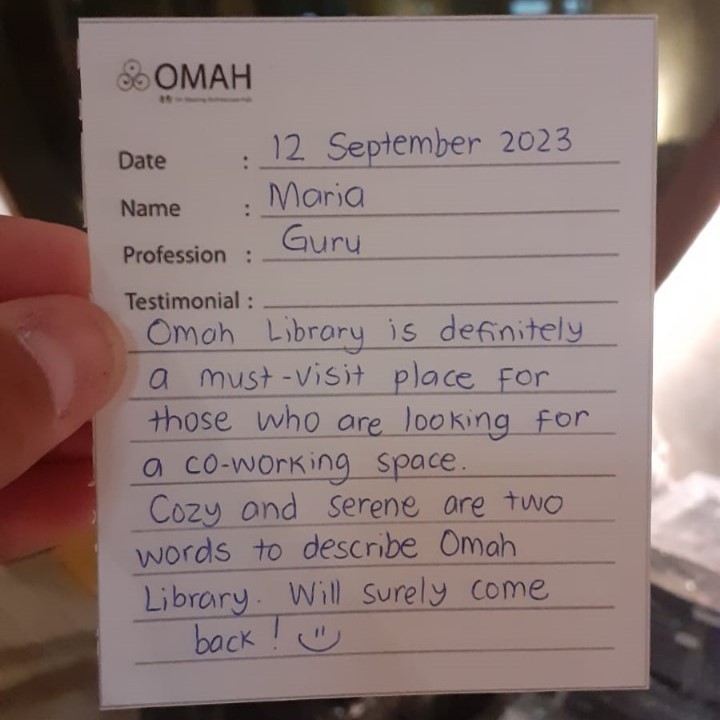 OMAH
Date : 12 September 2023
Name : Maria
Profession : Guru
Testimonial :
Omah Library is definitely
a must-visit place for
those who are looking for
a co-working space.
Cozy and serene are two
words to describe Omah
Library. Will surely come
back! :)